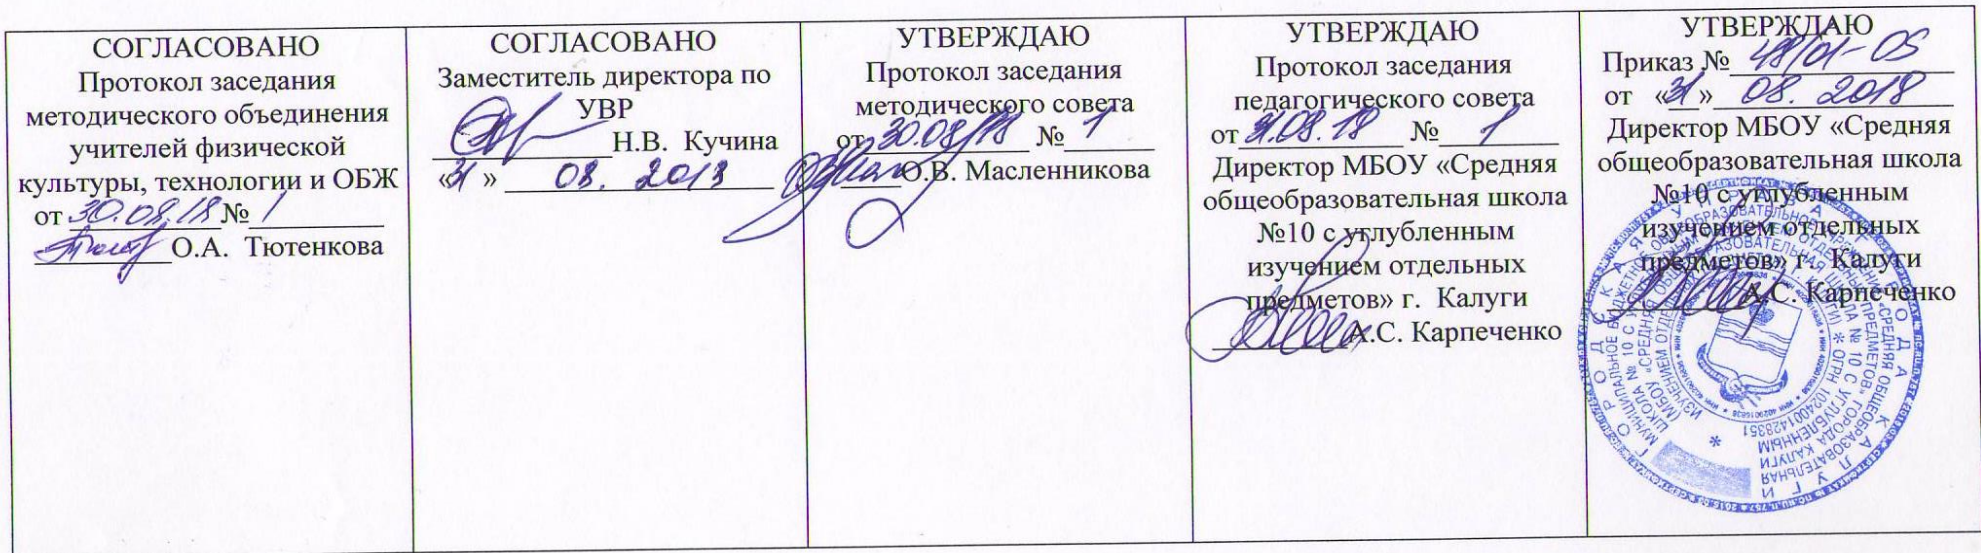 СОГЛАСОВАНО
Протокол заседания
методического объединения
учителей физической
культуры, технологии и ОБЖ
от 30.08.18 № 1
О.А. Тютенкова
СОГЛАСОВАНО
Заместитель директора по
УВР
Н.В. Кучина
«31» 08. 2018
УТВЕРЖДАЮ
Протокол заседания
методического совета
от 30.08.18 № 1
О.В. Масленникова
УТВЕРЖДАЮ
Протокол заседания
педагогического совета
от 31.08.18 № 1
Директор МБОУ «Средняя
общеобразовательная школа
№10 с углубленным
изучением отдельных
предметов» г. Калуги
А.С. Карпеченко
УТВЕРЖДАЮ
Приказ № /01-05
от «31» 08. 2018
Директор МБОУ «Средняя
общеобразовательная школа
№10 с углубленным
изучением отдельных
предметов» г. Калуги
А.С. Карпеченко
ГОРОДСКАЯ УПРАВА ГОРОДА КАЛУГИ